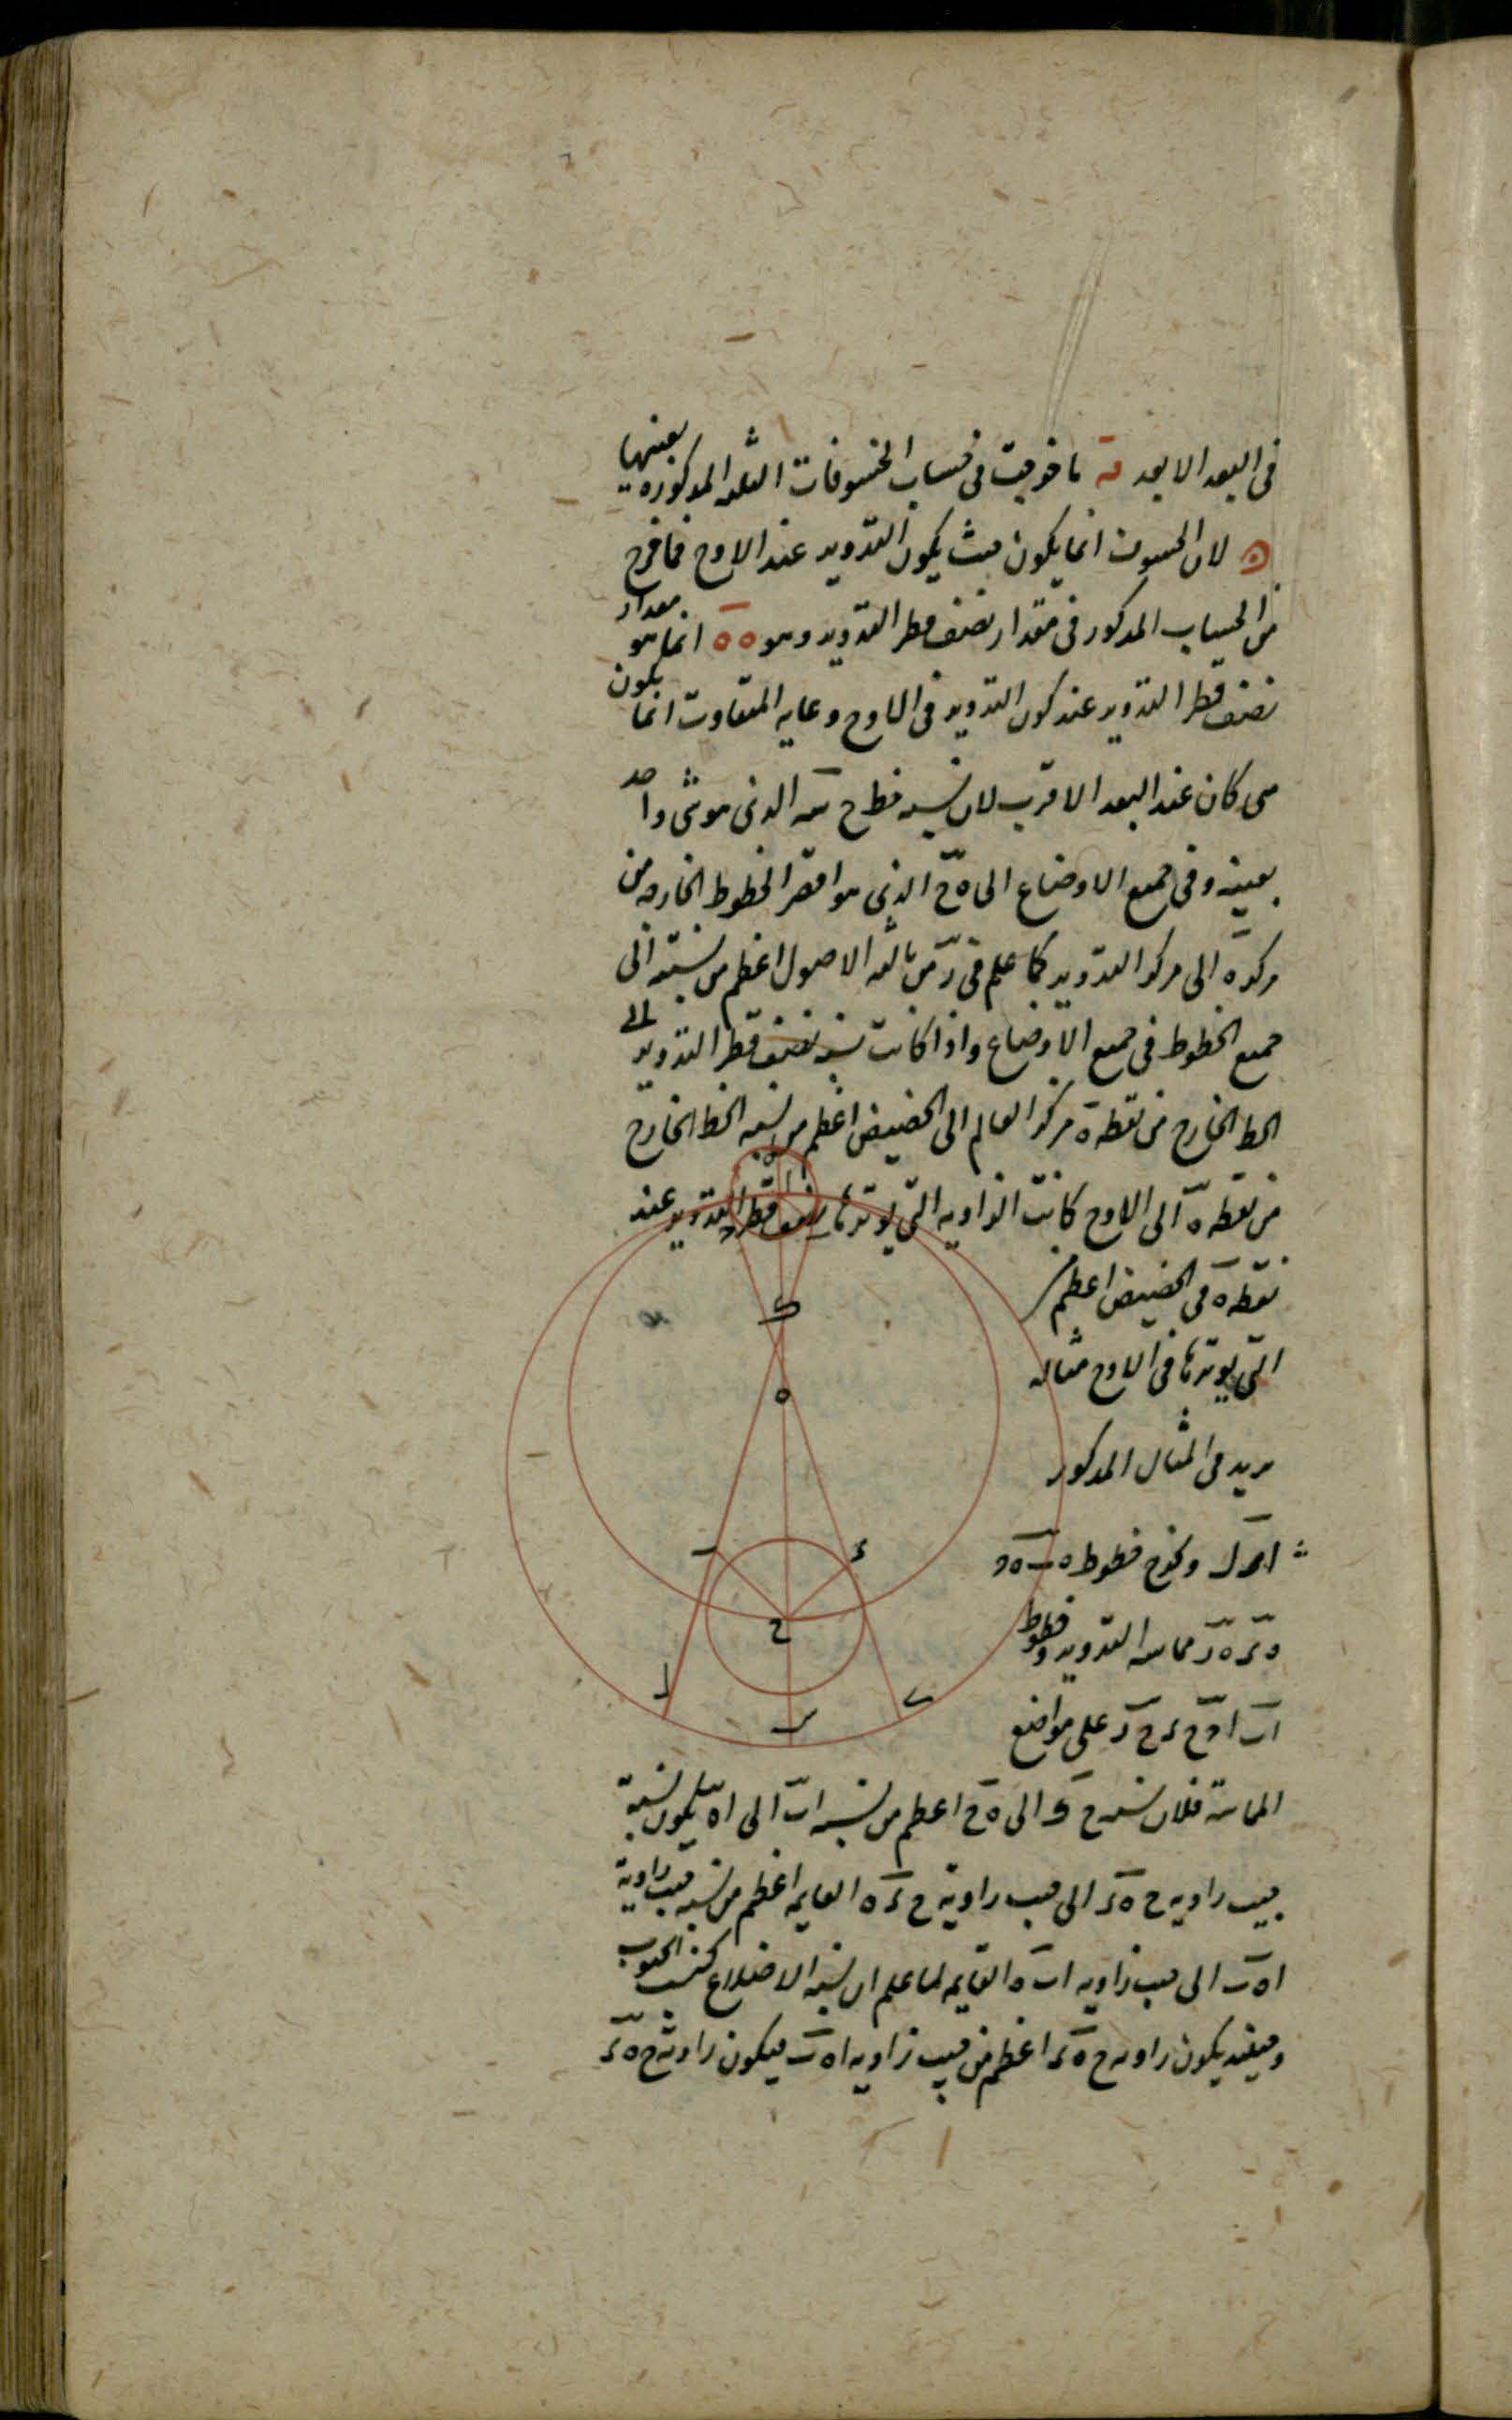 في البعد الابعد قه ما خوجت في حساب الخسوفات الثلثه المذكوره بعينها
لان الخسوف انما يكون حيث يكون التدوير عند الاوج فما خرج
من الحساب المذكور في مقدار نصف قطر التدوير وهو ه ه انما هو مقدار
نصف قطر التدوير عند كون التدوير في الاوج وغايه التفاوت انما يكون
متى كان عند البعد الاقرب لان نسبه خط ح الذي هو شي واحد
بعينه وفي جميع الاوضاع الى ه ح الذي هو اقصر الخطوط الخارجه من
مركز ه الى مركز التدوير كما علم في ز من ثالثه الاصول اعظم من نسبته الى
جميع الخطوط في جميع الاوضاع واذا كانت نسبه نصف قطر التدوير الى
الخط الخارج من نقطه ه مركز العالم الى الحضيض اعظم من نسبه الخط الخارج
من نقطه ه الى الاوج كانت الزاويه التي يوترها نصف قطر التدوير عند
نقطه ه في الحضيض اعظم من
التي يوترها في الاوج مثاله
يريد في المثال المذكور
ونخرج خطوط ه ب ه و
مماسه التدوير وخطوط
اب او ح ح ز على مواضع
المماسة فلان نسبه ح الى ه ح اعظم من نسبه اب الى اه يكون نسبة
جيب زاويه ح ه ء الى جيب زاوية ح ء ه القايمه اعظم من نسبه جيب زاوية
اه ب الى جيب زاويه اب ه القايمه لما علم ان نسبه الاضلاع كنسب الجيوب
وحينئذ يكون زاويه ح ه ء اعظم من جيب زاويه اه ب فيكون زاوية ح ه ء
ه
ح
ء
ب